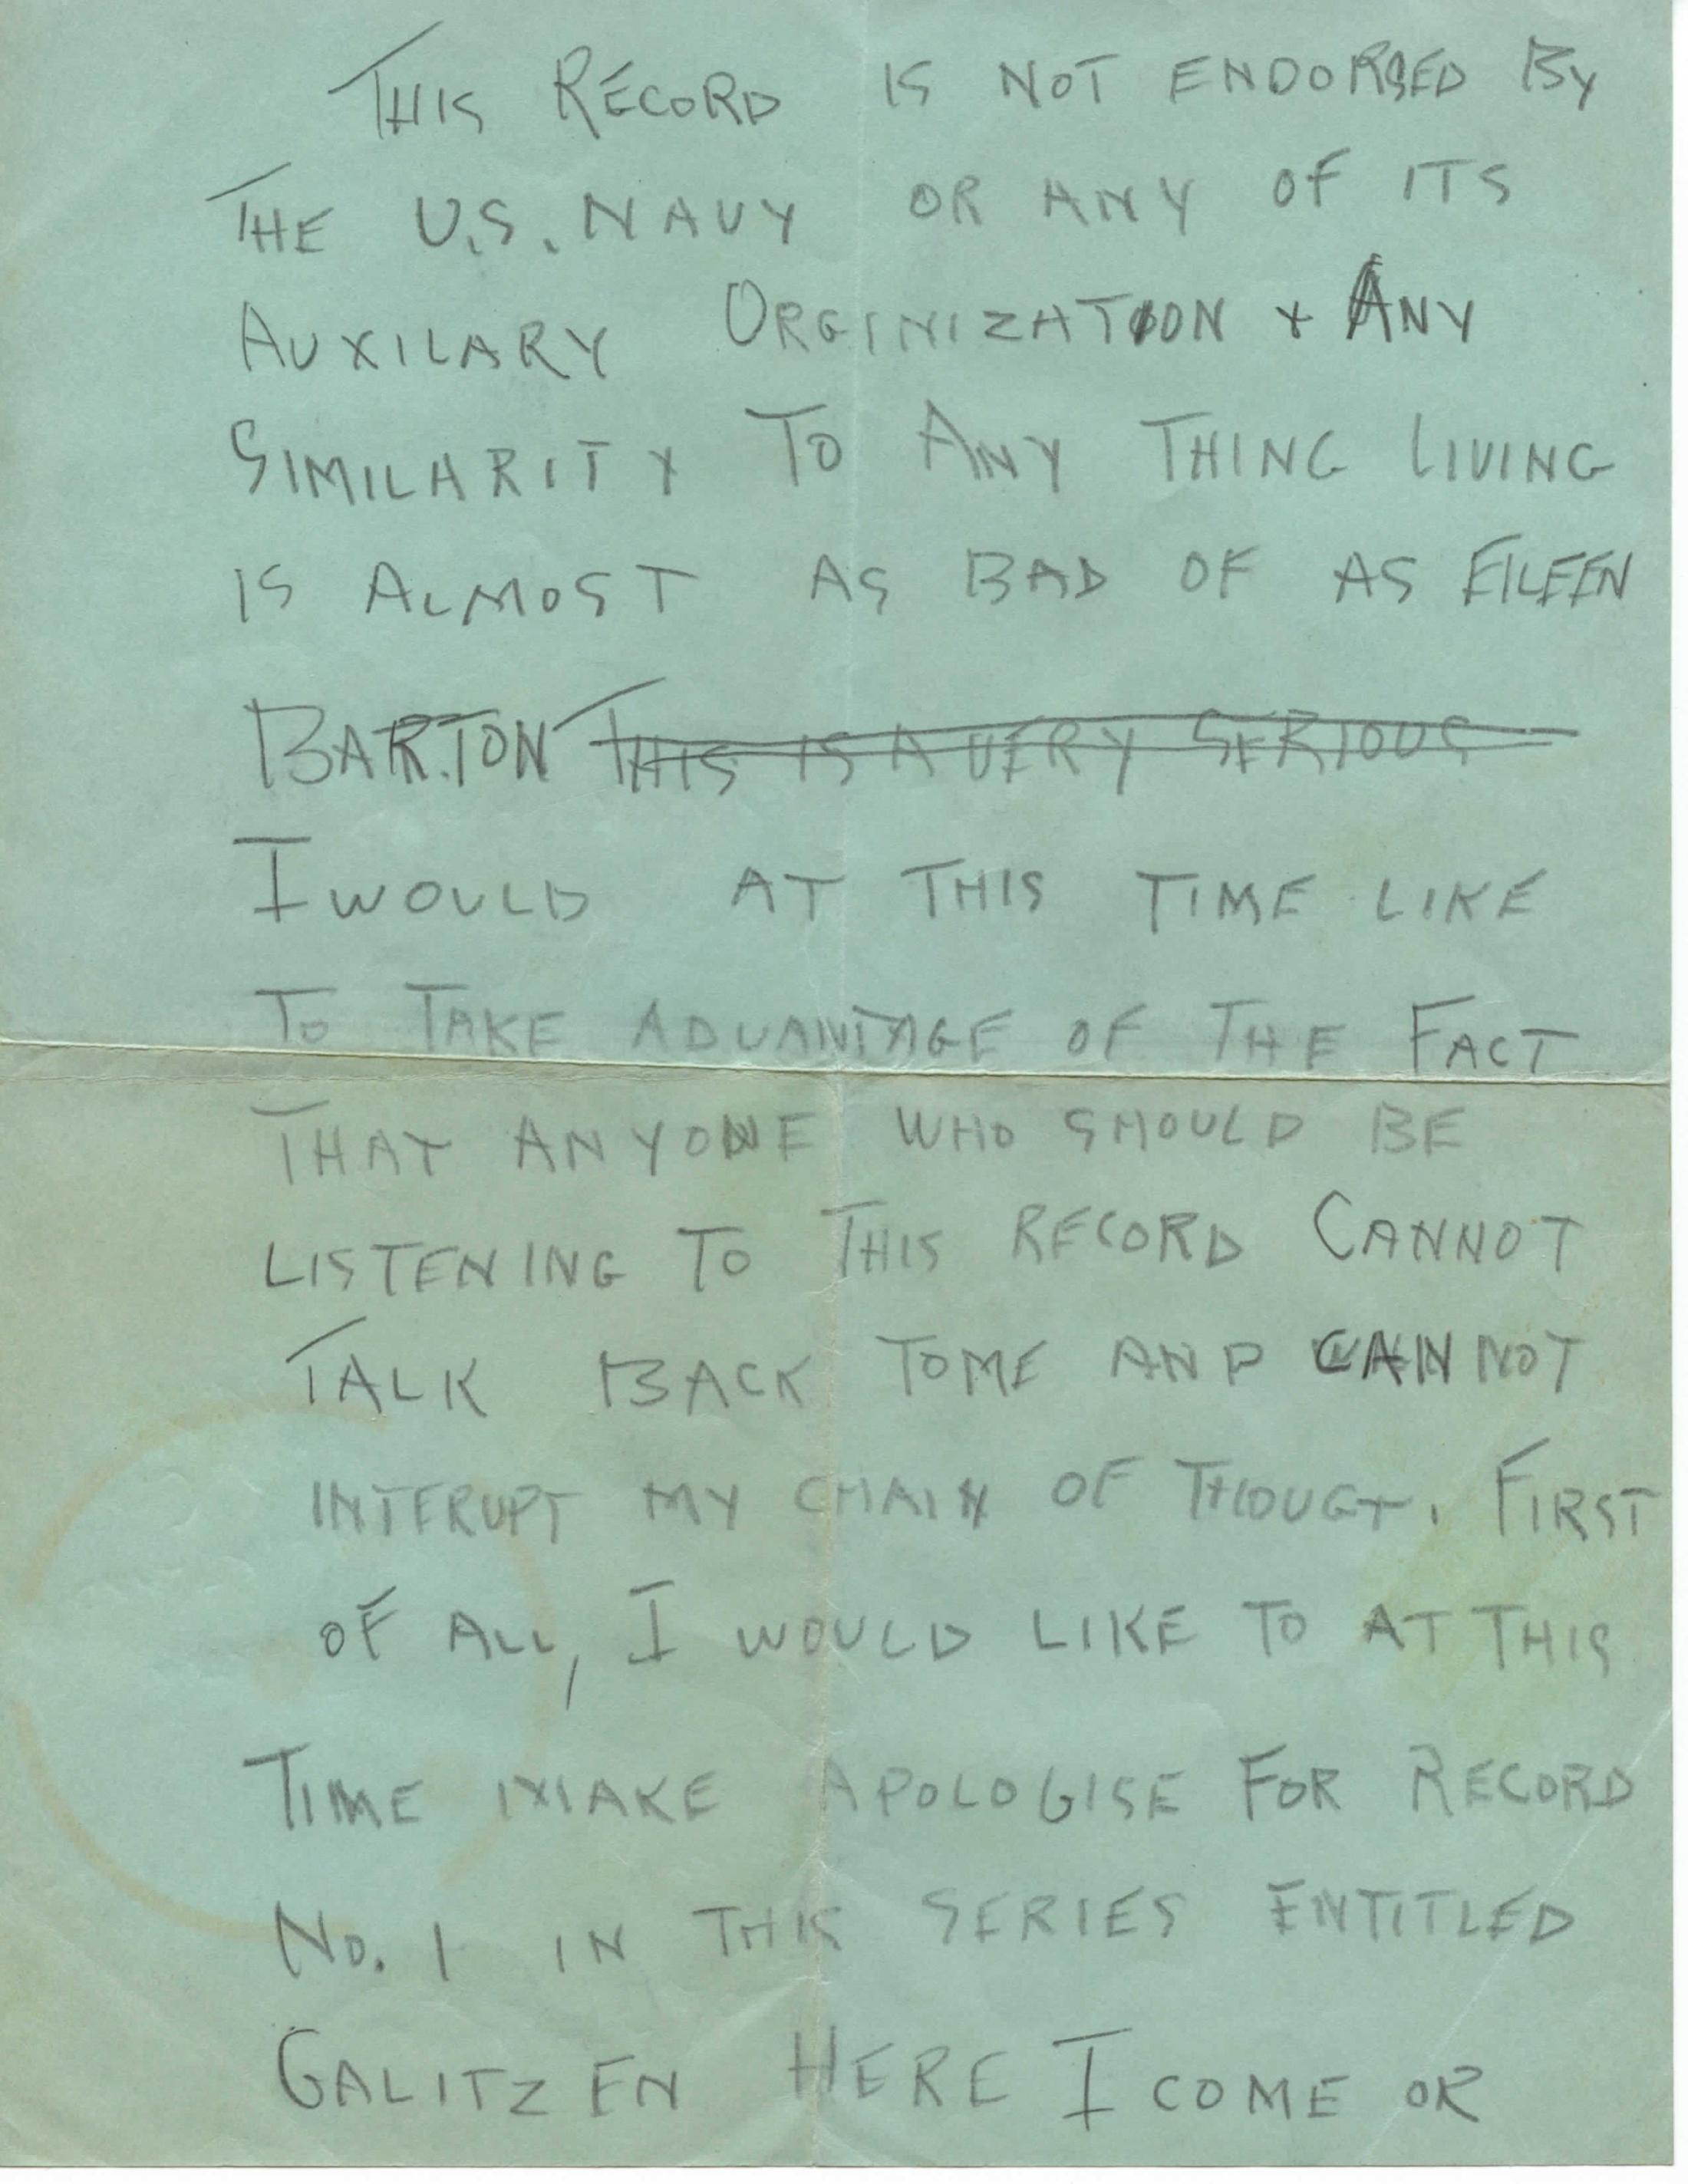 THIS RECORD IS NOT ENDORSED BY
THE U.S. NAVY OR ANY OF ITS
AUXILARY ORGINIZATION + ANY
SIMILARITY TO ANY THING LIVING
IS ALMOST AS BAD OF AS EILEEN
BARTON THIS IS A VERY SERIOUS
I WOULD AT THIS TIME LIKE
TO TAKE ADVANTAGE OF THE FACT
THAT ANYONE WHO SHOULD BE
LISTENING TO THIS RECORD CANNOT
TALK BACK TO ME AND CANNOT
INTERUPT MY CHAIN OF THOUGT. FIRST
OF ALL, I WOULD LIKE TO AT THIS
TIME MAKE APOLOGISE FOR RECORD
NO. 1 IN THIS SERIES ENTITLED
GALITZEN HERE I COME OR